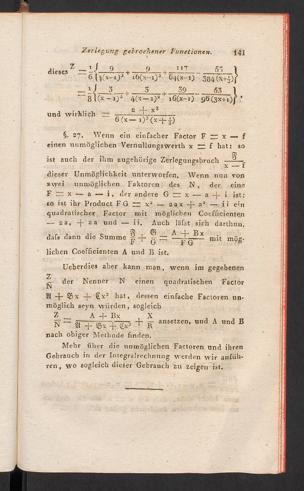 Zerlegung gebrochener Functionen. 141
dieses Z = 1/6 { 9/4(x-1)³ + 9/16(x-1)² - 117/64(x-1)
= 1/8 { 3/(x-1)³ + 3/4(x-1)² - 39/16(x-1)
und wirklich =
§. 27. Wenn ein einfacher Factor F = x — f
einen unmöglichen Vernullungswerth x = f hat: so
ist auch der ihm zugehörige Zerlegungsbruch 𝔉/x — f
dieser Unmöglichkeit unterworfen. Wenn nun von
zwei unmöglichen Faktoren des N, der eine
F = x — a — i, der andere G = x — a + i ist:
so ist ihr Product FG = x² — 2ax + a² — ii ein
quadratischer Factor mit möglichen Coefficienten
— 2a, + aa und — ii. Auch läßt sich darthun,
daß dann die Summe 𝔉/F + 𝔊/G = A + Bx/FG mit mög-
lichen Coefficienten A und B ist.
Ueberdies aber kann man, wenn im gegebenen
Z/N der Nenner N einen quadratischen Factor
𝔄 + 𝔅x + ℭx² hat, dessen einfache Factoren un-
möglich seyn würden, sogleich
Z/N = A + Bx/𝔄 + 𝔅x + ℭx² + X/R ansetzen, und A und B
nach obiger Methode finden.
Mehr über die unmöglichen Factoren und ihren
Gebrauch in der Integralrechnung werden wir anfüh-
ren, wo sogleich dieser Gebrauch zu zeigen ist.